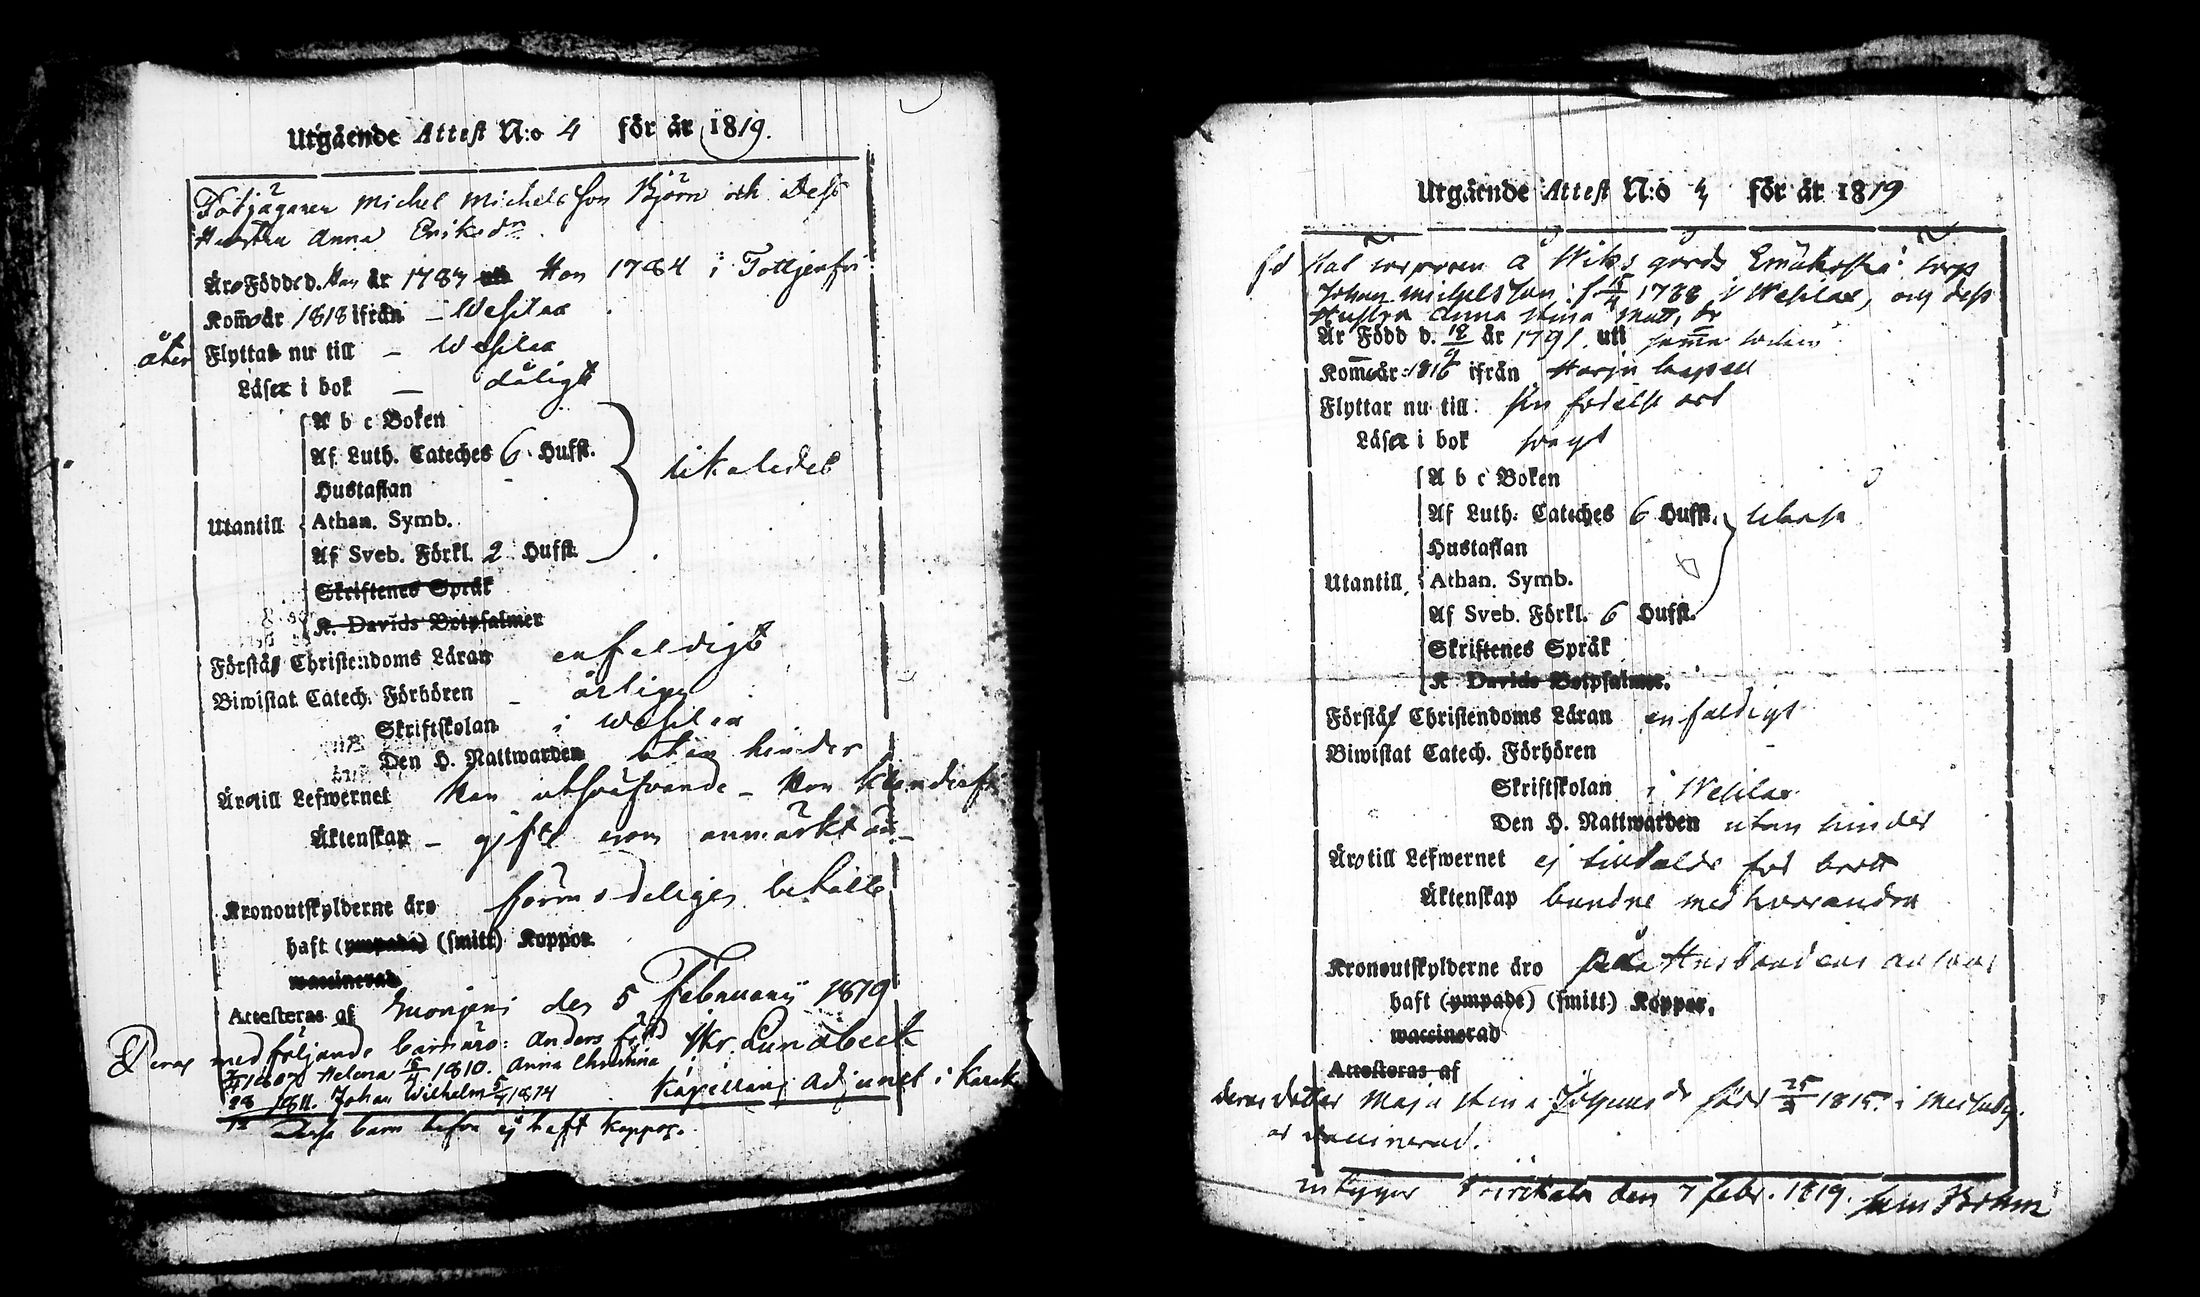 Utgående Attest N:o 4 för år 1819.
Fotjägaren Michel Michelsson Björn och Dess
Hustru Anna Eriksdr
Äro Födde d. Han år 1787 Hon 1784 i Tottjerfvi
Kom̄o år 1818 ifrån – Wesilax
åter Flyttat nu till – Wesilax
Läser i bok – dåligt
A b c Boken
Af Luth. Cateches 6 Hufst.
Hustaflan
likaledes
Utantill Athan. Symb.
Af Sveb. Förkl. 2 Hufst.
Skriftenes Språk
K. Davids Botpsalmer
Förstå Christendoms Läran enfaldigt
Biwistat Catech. Förhören – årligen
Skriftskolan i Wesilax
Den H. Nattwarden utan hinder
Äro till Lefwernet Han utsväfvande – Hon
Äktenskap – gifte som anmärkt är –
Kronoutskylderne äro förmodeligen betalte
haft (ympade) (smitt) Koppor.
waccinerad
Attesteras af den 5 Februarii 1819
Deras medföljande barn äro: Anders född Hkr. Lundbeck
1807 Helena 1810. Anna Christina Kapellans Adjunct i
28 1811. Johan Wilhelm 1814
12 Desse barn hafva ej haft koppor.
Utgående Attest N:o 4 för år 1819
å Wiks gårds torp
Johan Michelsson f. 1788 i Wesilax, och dess
Hustru Anna Stina Matts dr
Är Född d. 18 år 1791. uti samma socken
Kom̄o år 1816 ifrån Harju kapell
Flyttar nu till sin födelse ort
Läser i bok swagt
A b c Boken
Af Luth. Cateches 6 Hufst. likaså
Hustaflan
Utantill Athan. Symb.
Af Sveb. Förkl. 6 Hufst.
Skriftenes Språk
K Davids Botpsalmer.
Förstå Christendoms Läran enfaldigt
Biwistat Catech. Förhören
Skriftskolan i Wesilax
Den H. Nattwarden utan hinder
Äro till Lefwernet ej tilltalde för brott
Äktenskap bundne med hvarandra
Kronoutskylderne äro på Husbondens answar
haft (ympade) (smitt) Koppor.
waccinerad
Attesteras af
deras dotter Maja Stina Johans dr född 25/3 1815. i
är vaccinerad.
intygar den 7 febr. 1819.